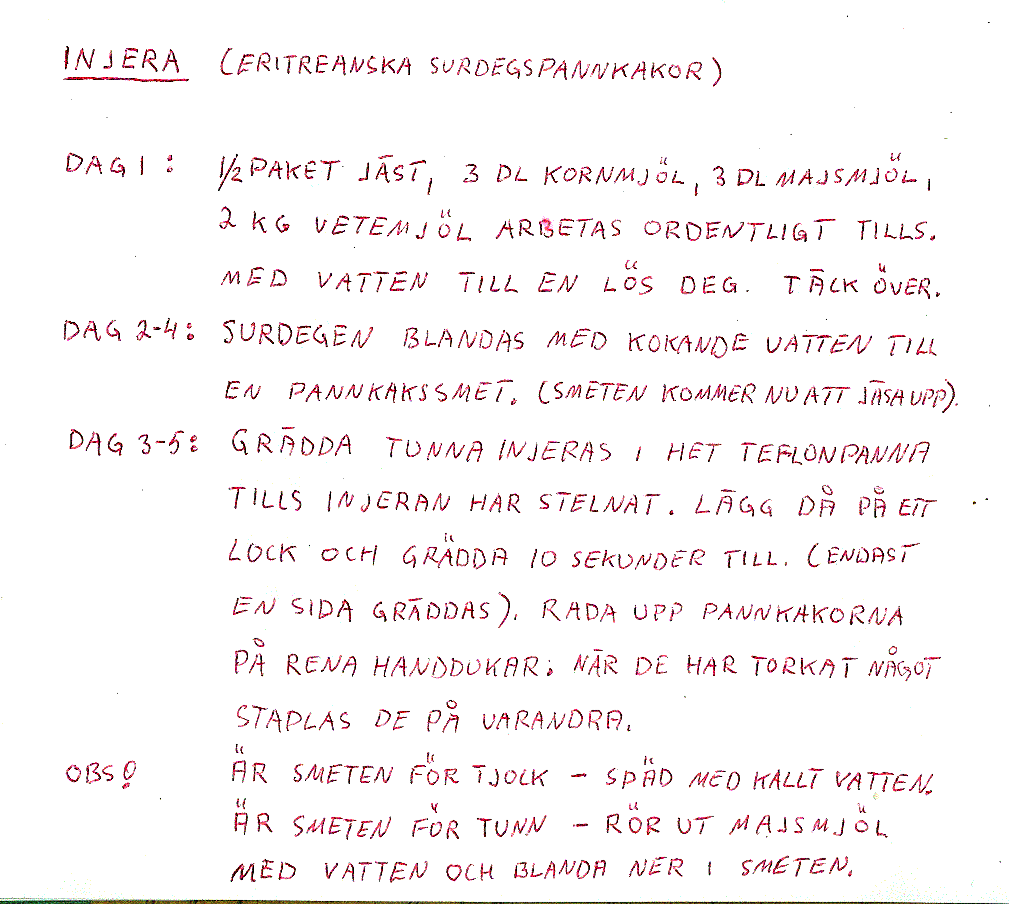 INJERA (ERITREANSKA SURDEGSPANNKAKOR)
DAG 1: 1/2 PAKET JÄST, 3 DL KORNMJÖL, 3 DL MAJSMJÖL,
2 KG VETEMJÖL ARBETAS ORDENTLIGT TILLS.
MED VATTEN TILL EN LÖS DEG. TÄCK ÖVER.
DAG 2-4: SURDEGEN BLANDAS MED KOKANDE VATTEN TILL
EN PANNKAKSSMET. (SMETEN KOMMER NU ATT JÄSA UPP).
DAG 3-5: GRÄDDA TUNNA INJERAS I HET TEFLONPANNA
TILLS INJERAN HAR STELNAT. LÄGG DÅ PÅ ETT
LOCK OCH GRÄDDA 10 SEKUNDER TILL. (ENDAST
EN SIDA GRÄDDAS). RADA UPP PANNKAKORNA
PÅ RENA HANDDUKAR; NÄR DE HAR TORKAT NÅGOT
STAPLAS DE PÅ VARANDRA.
OBS! ÄR SMETEN FÖR TJOCK - SPÄD MED KALLT VATTEN.
ÄR SMETEN FÖR TUNN - RÖR UT MAJSMJÖL
MED VATTEN OCH BLANDA NER I SMETEN.